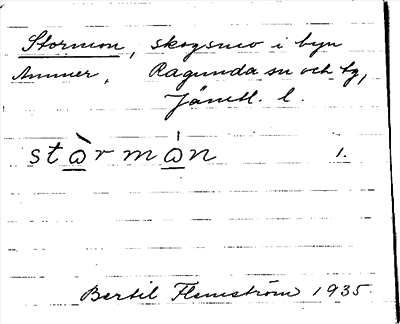 Stormon, skogsmo i byn
Ammer, Ragunda sn och tg,
Jämtl. l.
stὼ̲rmω̲̍n 1.
Bertil Flemström 1935.